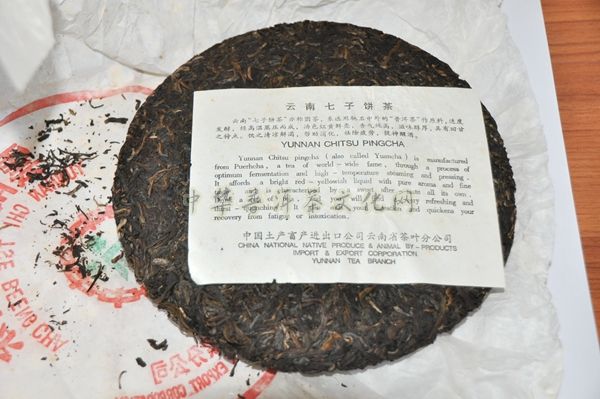 云南七子饼茶
云南"七子饼茶"亦称圆茶，系选用驰名中外的"普洱茶"作原料，适度
发酵，经高温蒸压而成，汤色红黄鲜亮，香气纯高，滋味醇厚，具有回甘
之特点，饮之清凉解渴，帮助消化，祛除疲劳，提神醒酒。
YUNNAN CHITSU PINGCHA
Yunnan Chitsu pingcha (also called Yuancha) is manufactured
from Puerhcha, a tea of world-wide fame, through a process of
optimum fermentation and high-temperature steaming and pressing.
It affords a bright red-yellowish liquid with pure aroma and fine
characterized by a sweet after-taste all its own.
will refreshing and
quickens your
recovery from fatigue or intoxication.
中国土产畜产进出口公司云南省茶叶分公司
CHINA NATIONAL NATIVE PRODUCE & ANIMAL BY-PRODUCTS
IMPORT & EXPORT CORPORATION
YUNNAN TEA BRANCH
中华普洱茶文化网